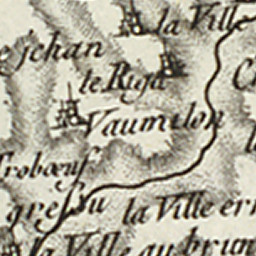 la Ville
e jehan
le Rigd
Vaumilon
Trobœuf
gresou
la Ville ern
la Ville au brun